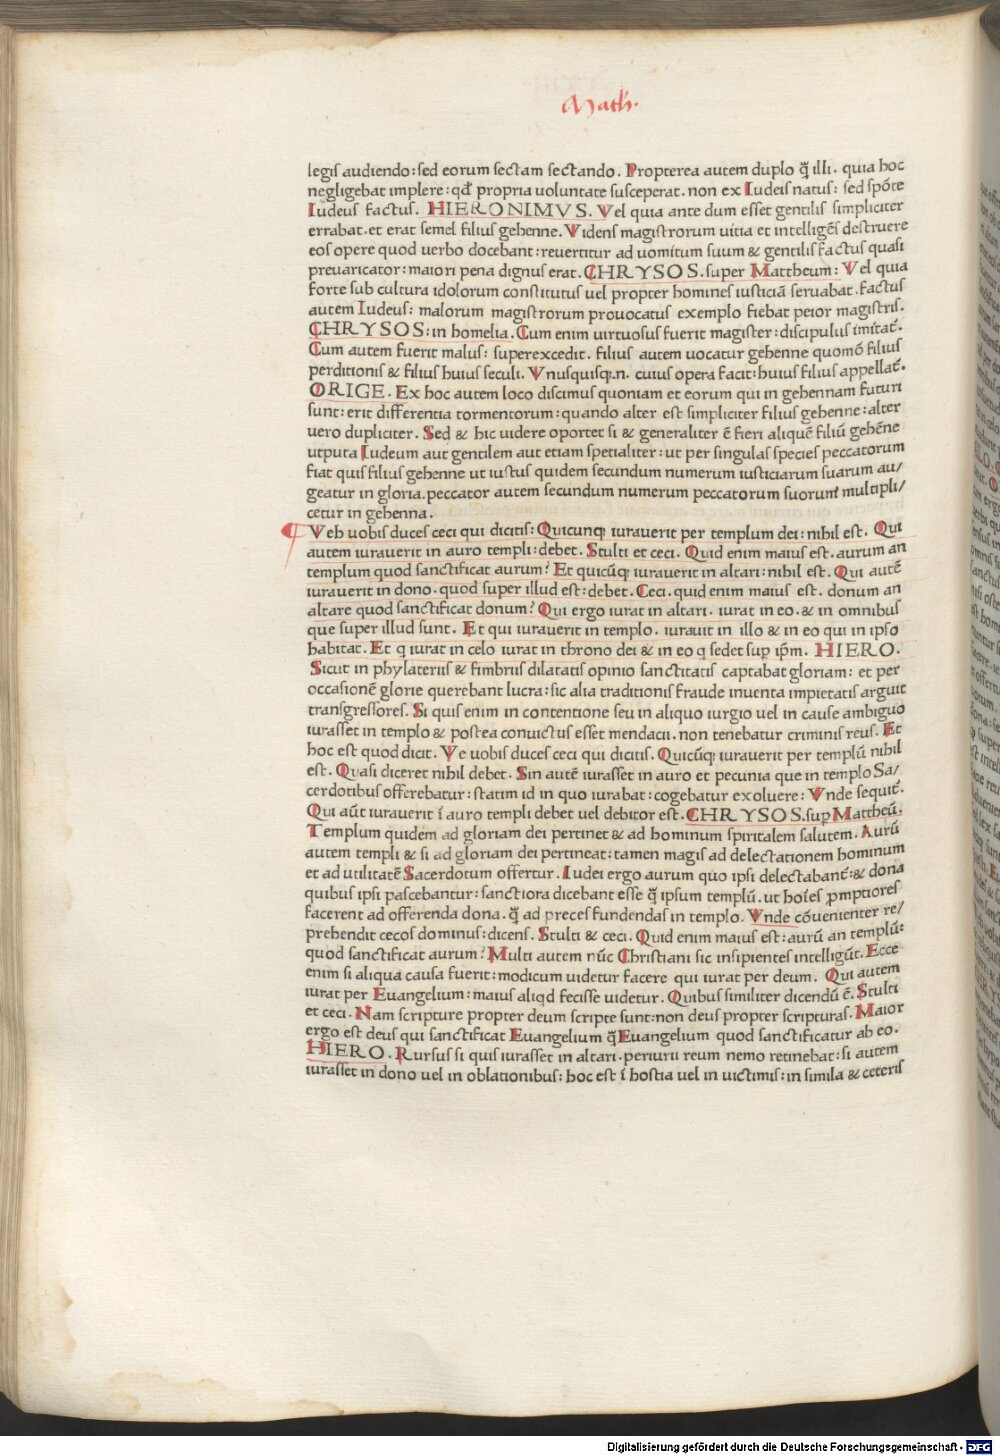 Math.
legis audiendo: sed eorum sectam sectando. Propterea autem duplo q̃ illi. quia hoc
negligebat implere: qđ propria uoluntate susceperat. non ex Iudeis natus: sed spōte
Iudeus factus. HIERONIMVS. Vel quia ante dum esset gentilis simpliciter
errabat. et erat semel filius gehenne. Videns magistrorum uitia et intelligēs destruere
eos opere quod uerbo docebant: reuertitur ad uomitum suum & gentilis factus quasi
preuaricator: maiori pena dignus erat. CHRYSOS. super Mattheum: Vel quia
forte sub cultura idolorum constitutus uel propter homines iusticiā seruabat. factus
autem Iudeus: malorum magistrorum prouocatus exemplo fiebat peior magistris.
CHRYSOS: in homelia. Cum enim uirtuosus fuerit magister: discipulus imitat̃.
Cum autem fuerit malus: superexcedit. filius autem uocatur gehenne quomō filius
perditionis & filius huius seculi. Vnusquisq;.n. cuius opera facit: huius filius appellat̃.
ORIGE. Ex hoc autem loco discimus quoniam et eorum qui in gehennam futuri
sunt: erit differentia tormentorum: quando alter est simpliciter filius gehenne: alter
uero dupliciter. Sed & hic uidere oportet si & generaliter ē fieri aliquē filiū gehēne
utputa Iudeum aut gentilem aut etiam spetialiter: ut per singulas species peccatorum
fiat quis filius gehenne ut iustus quidem secundum numerum iusticiarum suarum au/
geatur in gloria. peccator autem secundum numerum peccatorum suorum multipli/
cetur in gehenna.
¶ Veh uobis duces ceci qui dicitis: Quicunq; iurauerit per templum dei: nihil est. Qui
autem iurauerit in auro templi: debet. Stulti et ceci. Quid enim maius est. aurum an
templum quod sanctificat aurum? Et quicūq; iurauerit in altari: nihil est. Qui autē
iurauerit in dono. quod super illud est: debet. Ceci. quid enim maius est. donum an
altare quod sanctificat donum? Qui ergo iurat in altari. iurat in eo. & in omnibus
que super illud sunt. Et qui iurauerit in templo. iurauit in illo & in eo qui in ipso
habitat. Et q iurat in celo iurat in throno dei & in eo q sedet sup ip̄m. HIERO.
Sicut in phylateriis & fimbriis dilatatis opinio sanctitatis captabat gloriam: et per
occasionē glorie querebant lucra: sic alia traditionis fraude inuenta impietatis arguit
transgressores. Si quis enim in contentione seu in aliquo iurgio uel in cause ambiguo
iurasset in templo & postea conuictus esset mendacii. non tenebatur criminis reus. Et
hoc est quod dicit. Ve uobis duces ceci qui dicitis. Quicūq; iurauerit per templū nihil
est. Quasi diceret nihil debet. Sin autē iurasset in auro et pecunia que in templo Sa/
cerdotibus offerebatur: statim id in quo iurabat: cogebatur exoluere: Vnde sequit̃.
Qui aūt iurauerit ī auro templi debet uel debitor est. CHRYSOS. sup Mattheū.
Templum quidem ad gloriam dei pertinet & ad hominum spiritalem salutem. Aurū
autem templi & si ad gloriam dei pertineat: tamen magis ad delectationem hominum
et ad utilitatē Sacerdotum offertur. Iudei ergo aurum quo ipsi delectabant̃: & dona
quibus ipsi pascebantur: sanctiora dicebant esse q̃ ipsum templū. ut hoīes ꝓmptiores
facerent ad offerenda dona. q̃ ad preces fundendas in templo. Vnde cōuenienter re/
prehendit cecos dominus: dicens. Stulti & ceci. Quid enim maius est: aurū an templū:
quod sanctificat aurum? Multi autem nūc Christiani sic insipientes intelligūt. Ecce
enim si aliqua causa fuerit: modicum uidetur facere qui iurat per deum. Qui autem
iurat per Euangelium: maius aliqd fecisse uidetur. Quibus similiter dicendū ē. Stulti
et ceci. Nam scripture propter deum scripte sunt: non deus propter scripturas. Maior
ergo est deus qui sanctificat Euangelium q̃ Euangelium quod sanctificatur ab eo.
HIERO. Rursus si quis iurasset in altari. periurii reum nemo retinebat: si autem
iurasset in dono uel in oblationibus: hoc est ī hostia uel in uictimis: in simila & ceteris
Digitalisierung gefördert durch die Deutsche Forschungsgemeinschaft - DFG